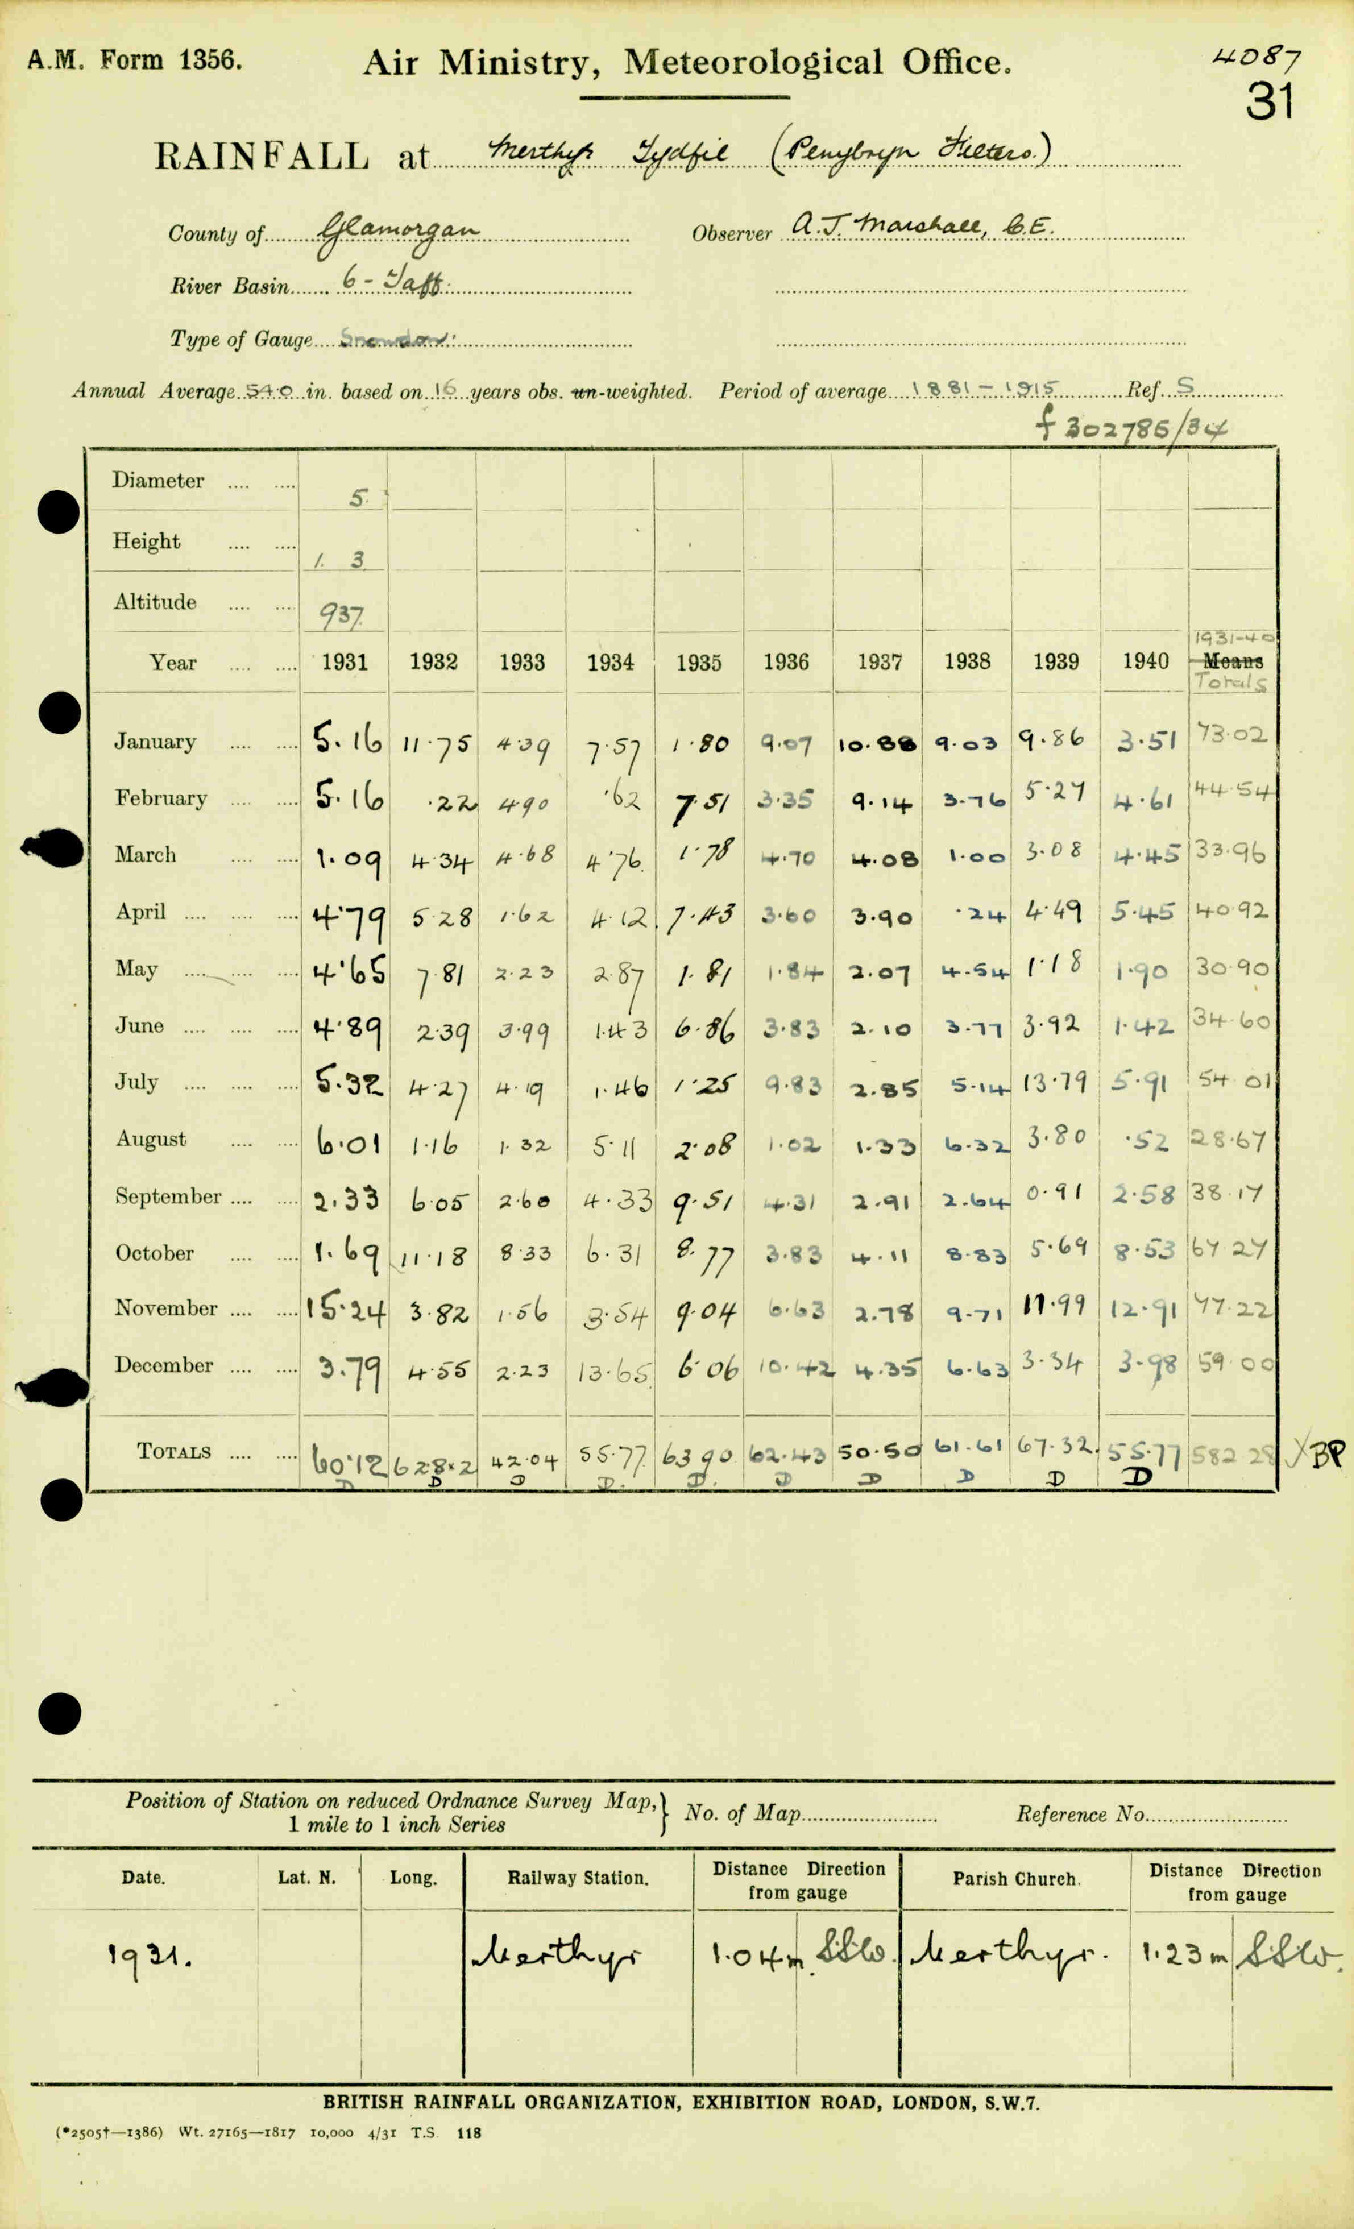 A.M. Form 1356. Air Ministry, Meteorological Office. 4087
31
RAINFALL at Merthyr Tydfil (Penybryn Filters.)
County of Glamorgan Observer A.J. Marshall, C.E.
River Basin 6 - Taff.
Type of Gauge Snowdon.
Annual Average 54·0 in. based on 16 years obs. un-weighted. Period of average 1881 - 1915 Ref. S
f 302786/34
Diameter .... .... 5
Height .... .... 1. 3
Altitude .... .... 937
1931-40
Year .... .... 1931 1932 1933 1934 1935 1936 1937 1938 1939 1940 Means
Totals
January .... .... 5.16 11.75 4.39 7.57 1.80 9.07 10.88 9.03 9.86 3.51 73.02
February .... .... 5.16 .22 4.90 .62 7.51 3.35 9.14 3.76 5.27 4.61 44.54
March .... .... 1.09 4.34 4.68 4.76 1.78 4.70 4.08 1.00 3.08 4.45 33.96
April .... .... .... 4.79 5.28 1.62 4.12 7.43 3.60 3.90 .24 4.49 5.45 40.92
May .... .... .... 4.65 7.81 2.23 2.87 1.81 1.84 2.07 4.54 1.18 1.90 30.90
June .... .... .... 4.89 2.39 3.99 1.43 6.86 3.83 2.10 3.77 3.92 1.42 34.60
July .... .... .... 5.32 4.27 4.19 1.46 1.25 9.83 2.85 5.14 13.79 5.91 54.01
August .... .... 6.01 1.16 1.32 5.11 2.08 1.02 1.33 6.32 3.80 .52 28.67
September .... .... 2.33 6.05 2.60 4.33 9.51 4.31 2.91 2.64 0.91 2.58 38.17
October .... .... 1.69 11.18 8.33 6.31 8.77 3.83 4.11 8.83 5.69 8.53 67.27
November .... .... 15.24 3.82 1.56 3.54 9.04 6.63 2.78 9.71 11.99 12.91 77.22
December .... .... 3.79 4.55 2.23 13.65 6.06 10.42 4.35 6.63 3.34 3.98 59.00
TOTALS .... .... 60.12 62.82 42.04 55.77 63.90 62.43 50.50 61.61 67.32 55.77 582.28 X BP
D D D D D D D D D D
Position of Station on reduced Ordnance Survey Map, } No. of Map Reference No.
1 mile to 1 inch Series
Date. Lat. N. Long. Railway Station. Distance Direction from gauge Parish Church. Distance Direction from gauge
1931. Merthyr 1.04m SSW. Merthyr. 1.23m SSW.
BRITISH RAINFALL ORGANIZATION, EXHIBITION ROAD, LONDON, S.W.7.
(*2505†—1386) Wt. 27165—1817 10,000 4/31 T.S. 118